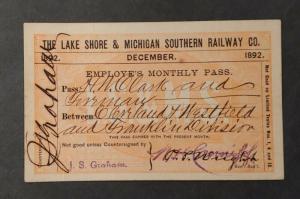 THE LAKE SHORE & MICHIGAN SOUTHERN RAILWAY CO.
DECEMBER. 1892.
EMPLOYE'S MONTHLY PASS.
Pass: H. W. Clark and
Between Oberlin & Westfield
and Franklin Division
THIS PASS EXPIRES WITH THE PRESENT MONTH.
Not good unless Countersigned by
J. S. Graham.
JSGraham
Not Good on Limited Trains Nos.